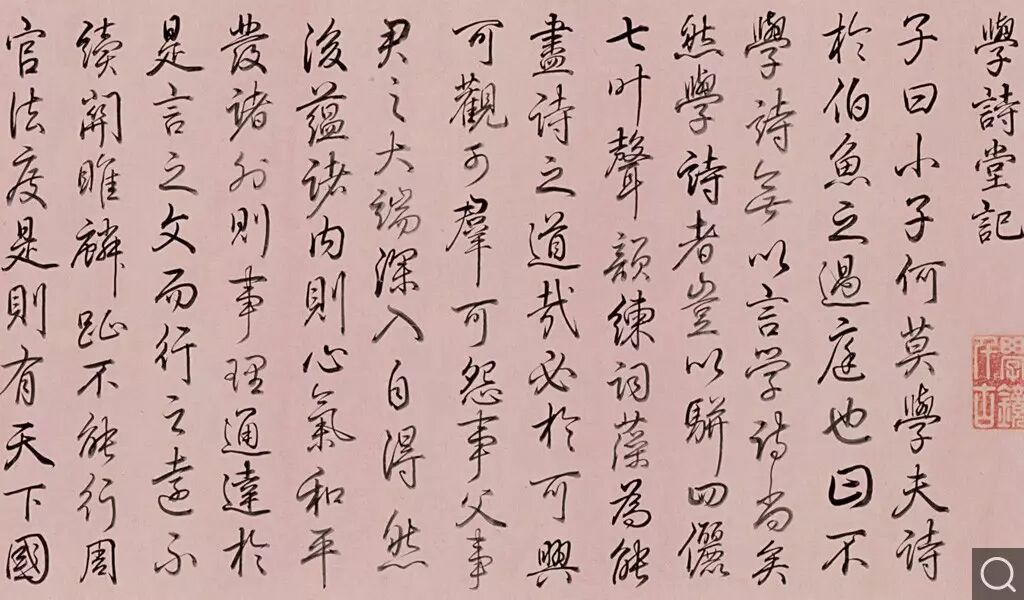 學詩堂記
子曰小子何莫學夫詩
於伯魚之過庭也曰不
學詩無以言學詩尚矣
然學詩者豈以駢四儷
七叶聲韻練詞藻為能
盡詩之道哉必於可興
可觀可羣可怨事父事
君之大端深入自得然
後蘊諸内則心氣和平
發諸外則事理通達於
是言之文而行之遠不
讀關雎麟趾不能行周
官法度是則有天下國